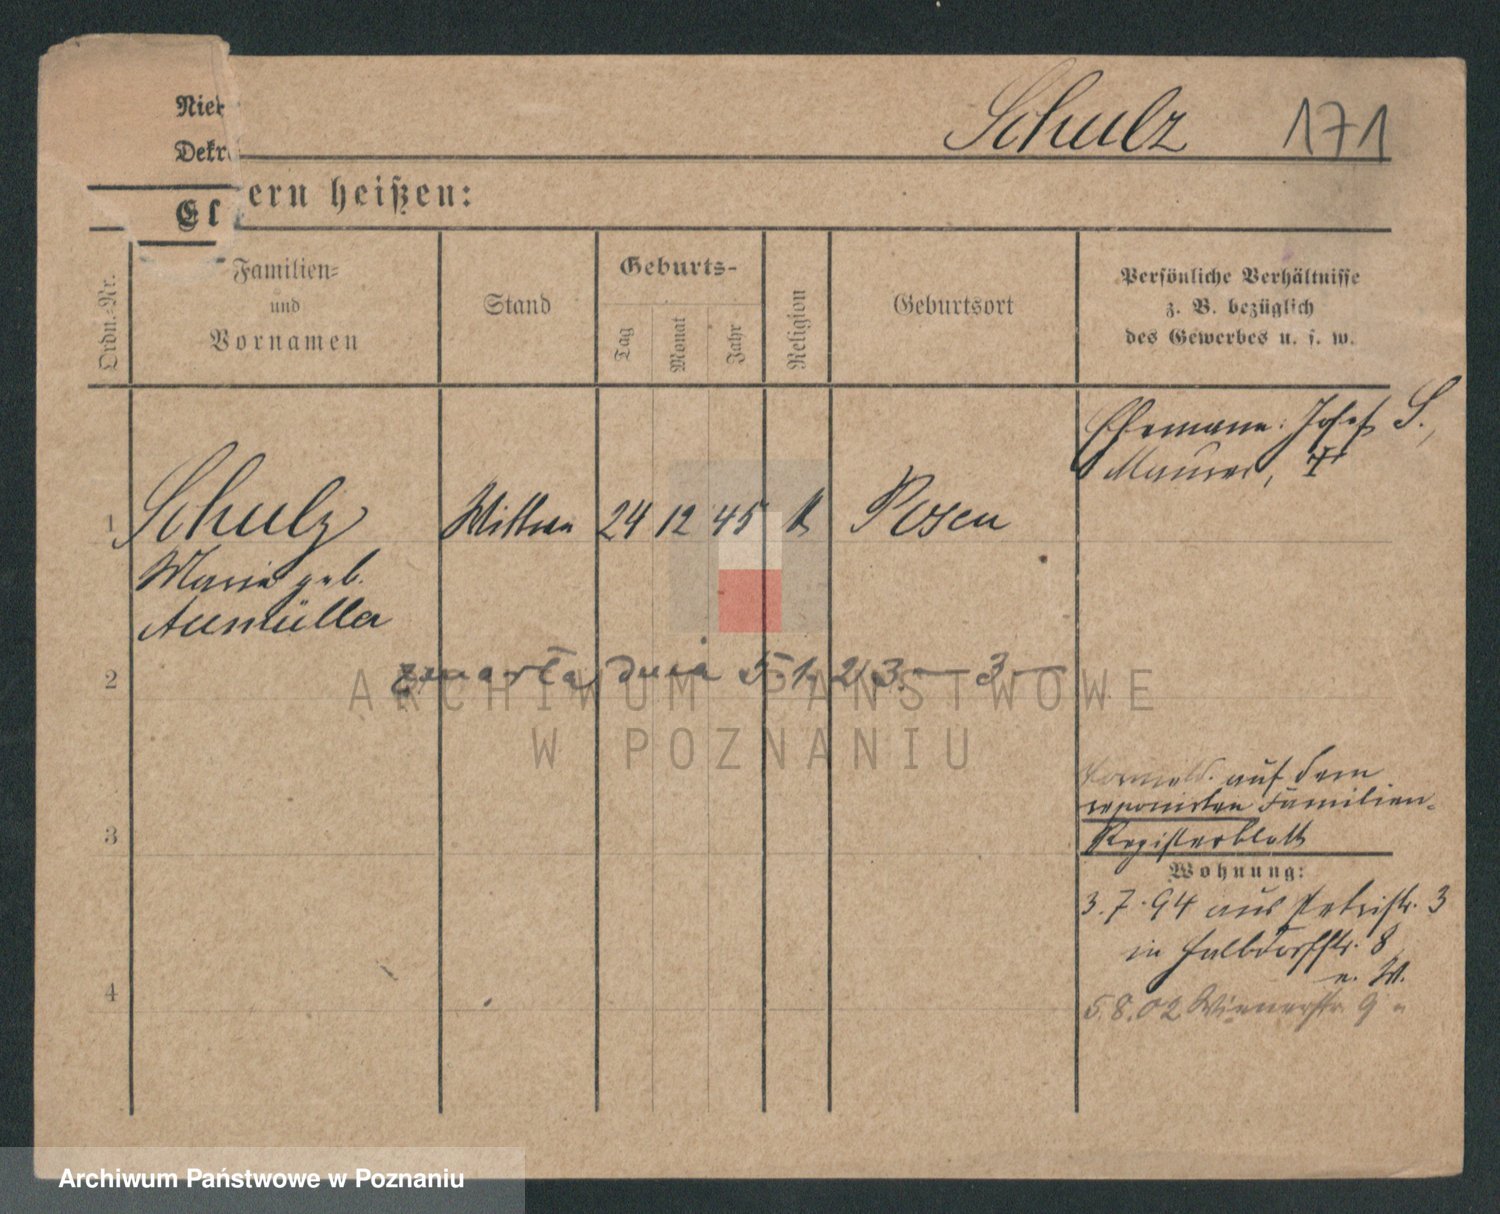 Schulz 171
Nie
Dekr
El ern heißen:
Ordn.-Nr.
Familien-
und
Vornamen
Stand
Geburts-
Tag
Monat
Jahr
Religion
Geburtsort
Persönliche Verhältnisse
z. B. bezüglich
des Gewerbes u. s. w.
Ehemann: Josef S.,
Maurer, †
1 Schulz Wittwe 24 12 45 k Posen
Marie geb.
Aumüller
zmarła dnia 5.1.23. — 3 —
2
ARCHIWUM PAŃSTWOWE
W POZNANIU
auf dem
reponirten Familien-
Registerblatt
3
Wohnung:
3.7.94 aus Petristr. 3
in Halbdorfstr. 8
n. W.
4
5.8.02 Wienerstr. 9
Archiwum Państwowe w Poznaniu